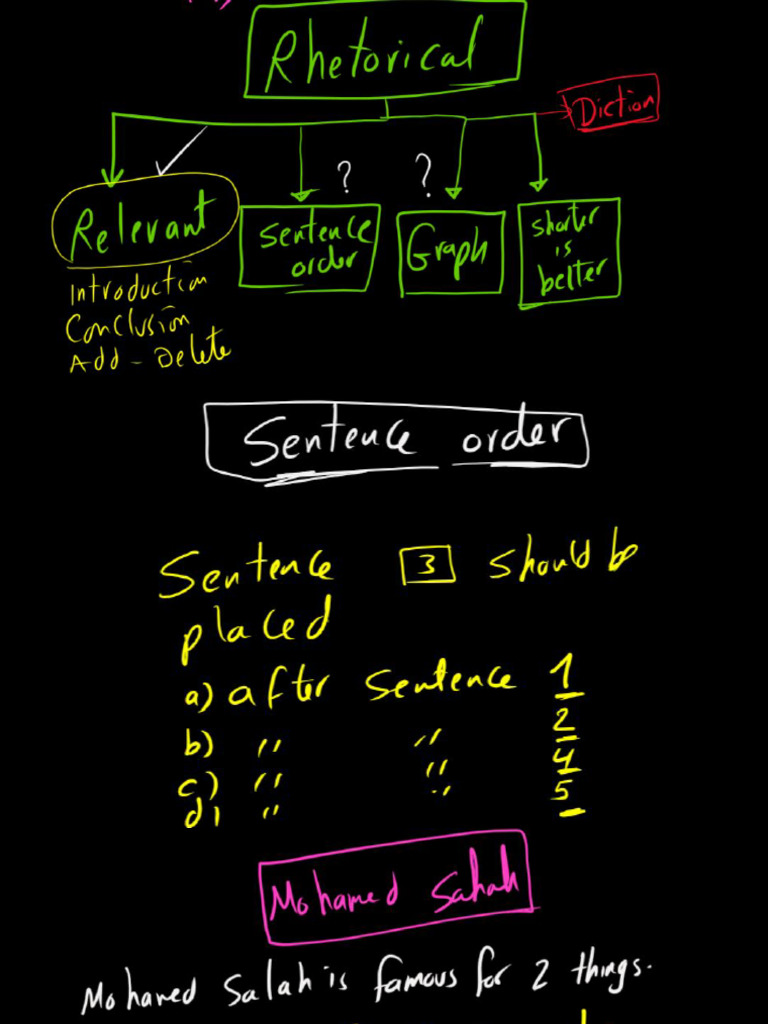 Rhetorical
Diction
Relevant
Sentence order
Graph
shorter is better
?
?
Introduction
Conclusion
Add - Delete
Sentence order
Sentence 3 should be
placed
a) after sentence 1
b) " " 2
c) " " 4
d) " " 5
Mohamed Salah
Mohamed Salah is famous for 2 things.